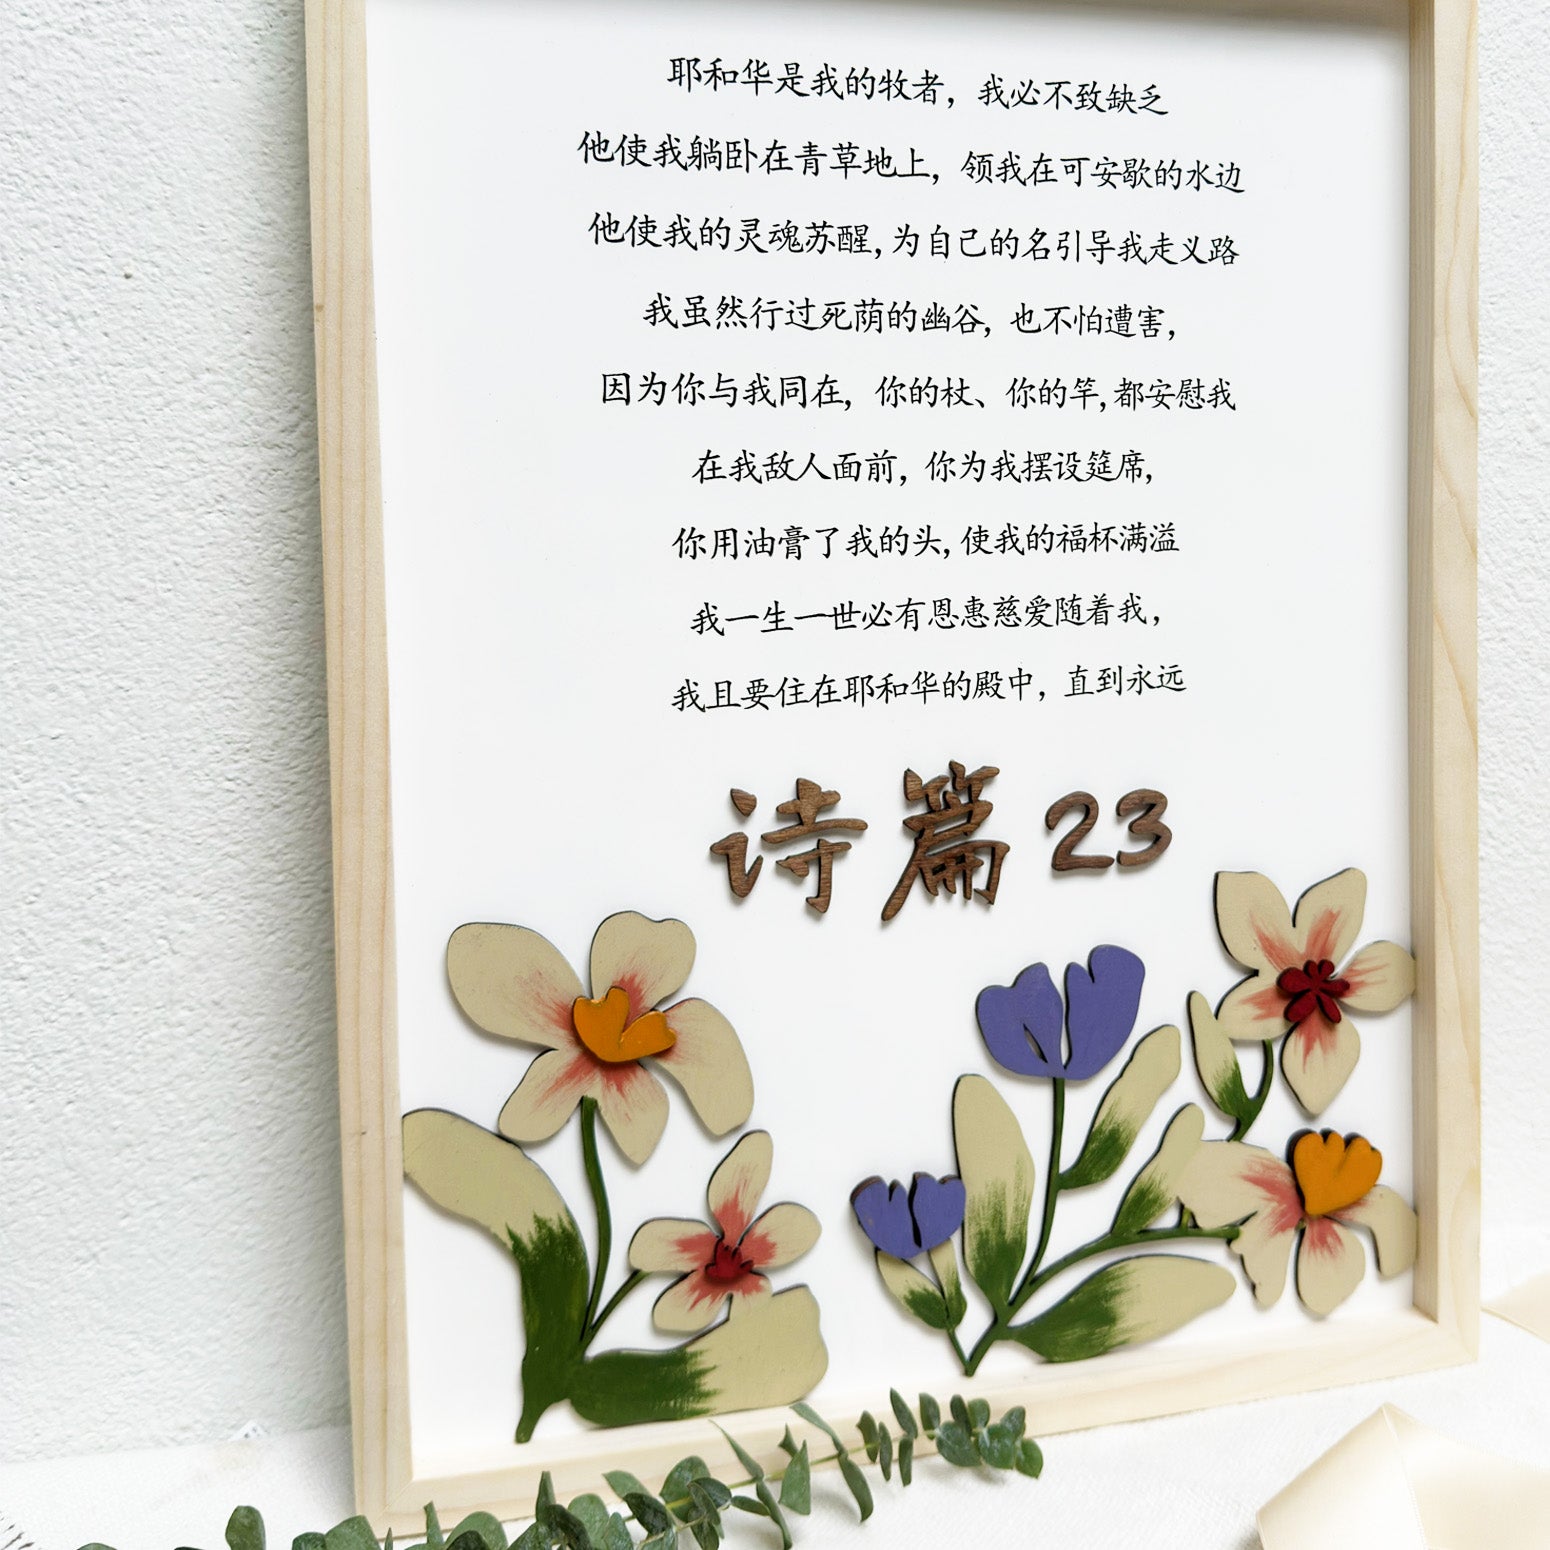 耶和华是我的牧者，我必不致缺乏
他使我躺卧在青草地上，领我在可安歇的水边
他使我的灵魂苏醒，为自己的名引导我走义路
我虽然行过死荫的幽谷，也不怕遭害，
因为你与我同在，你的杖、你的竿，都安慰我
在我敌人面前，你为我摆设筵席，
你用油膏了我的头，使我的福杯满溢
我一生一世必有恩惠慈爱随着我，
我且要住在耶和华的殿中，直到永远
诗篇 23